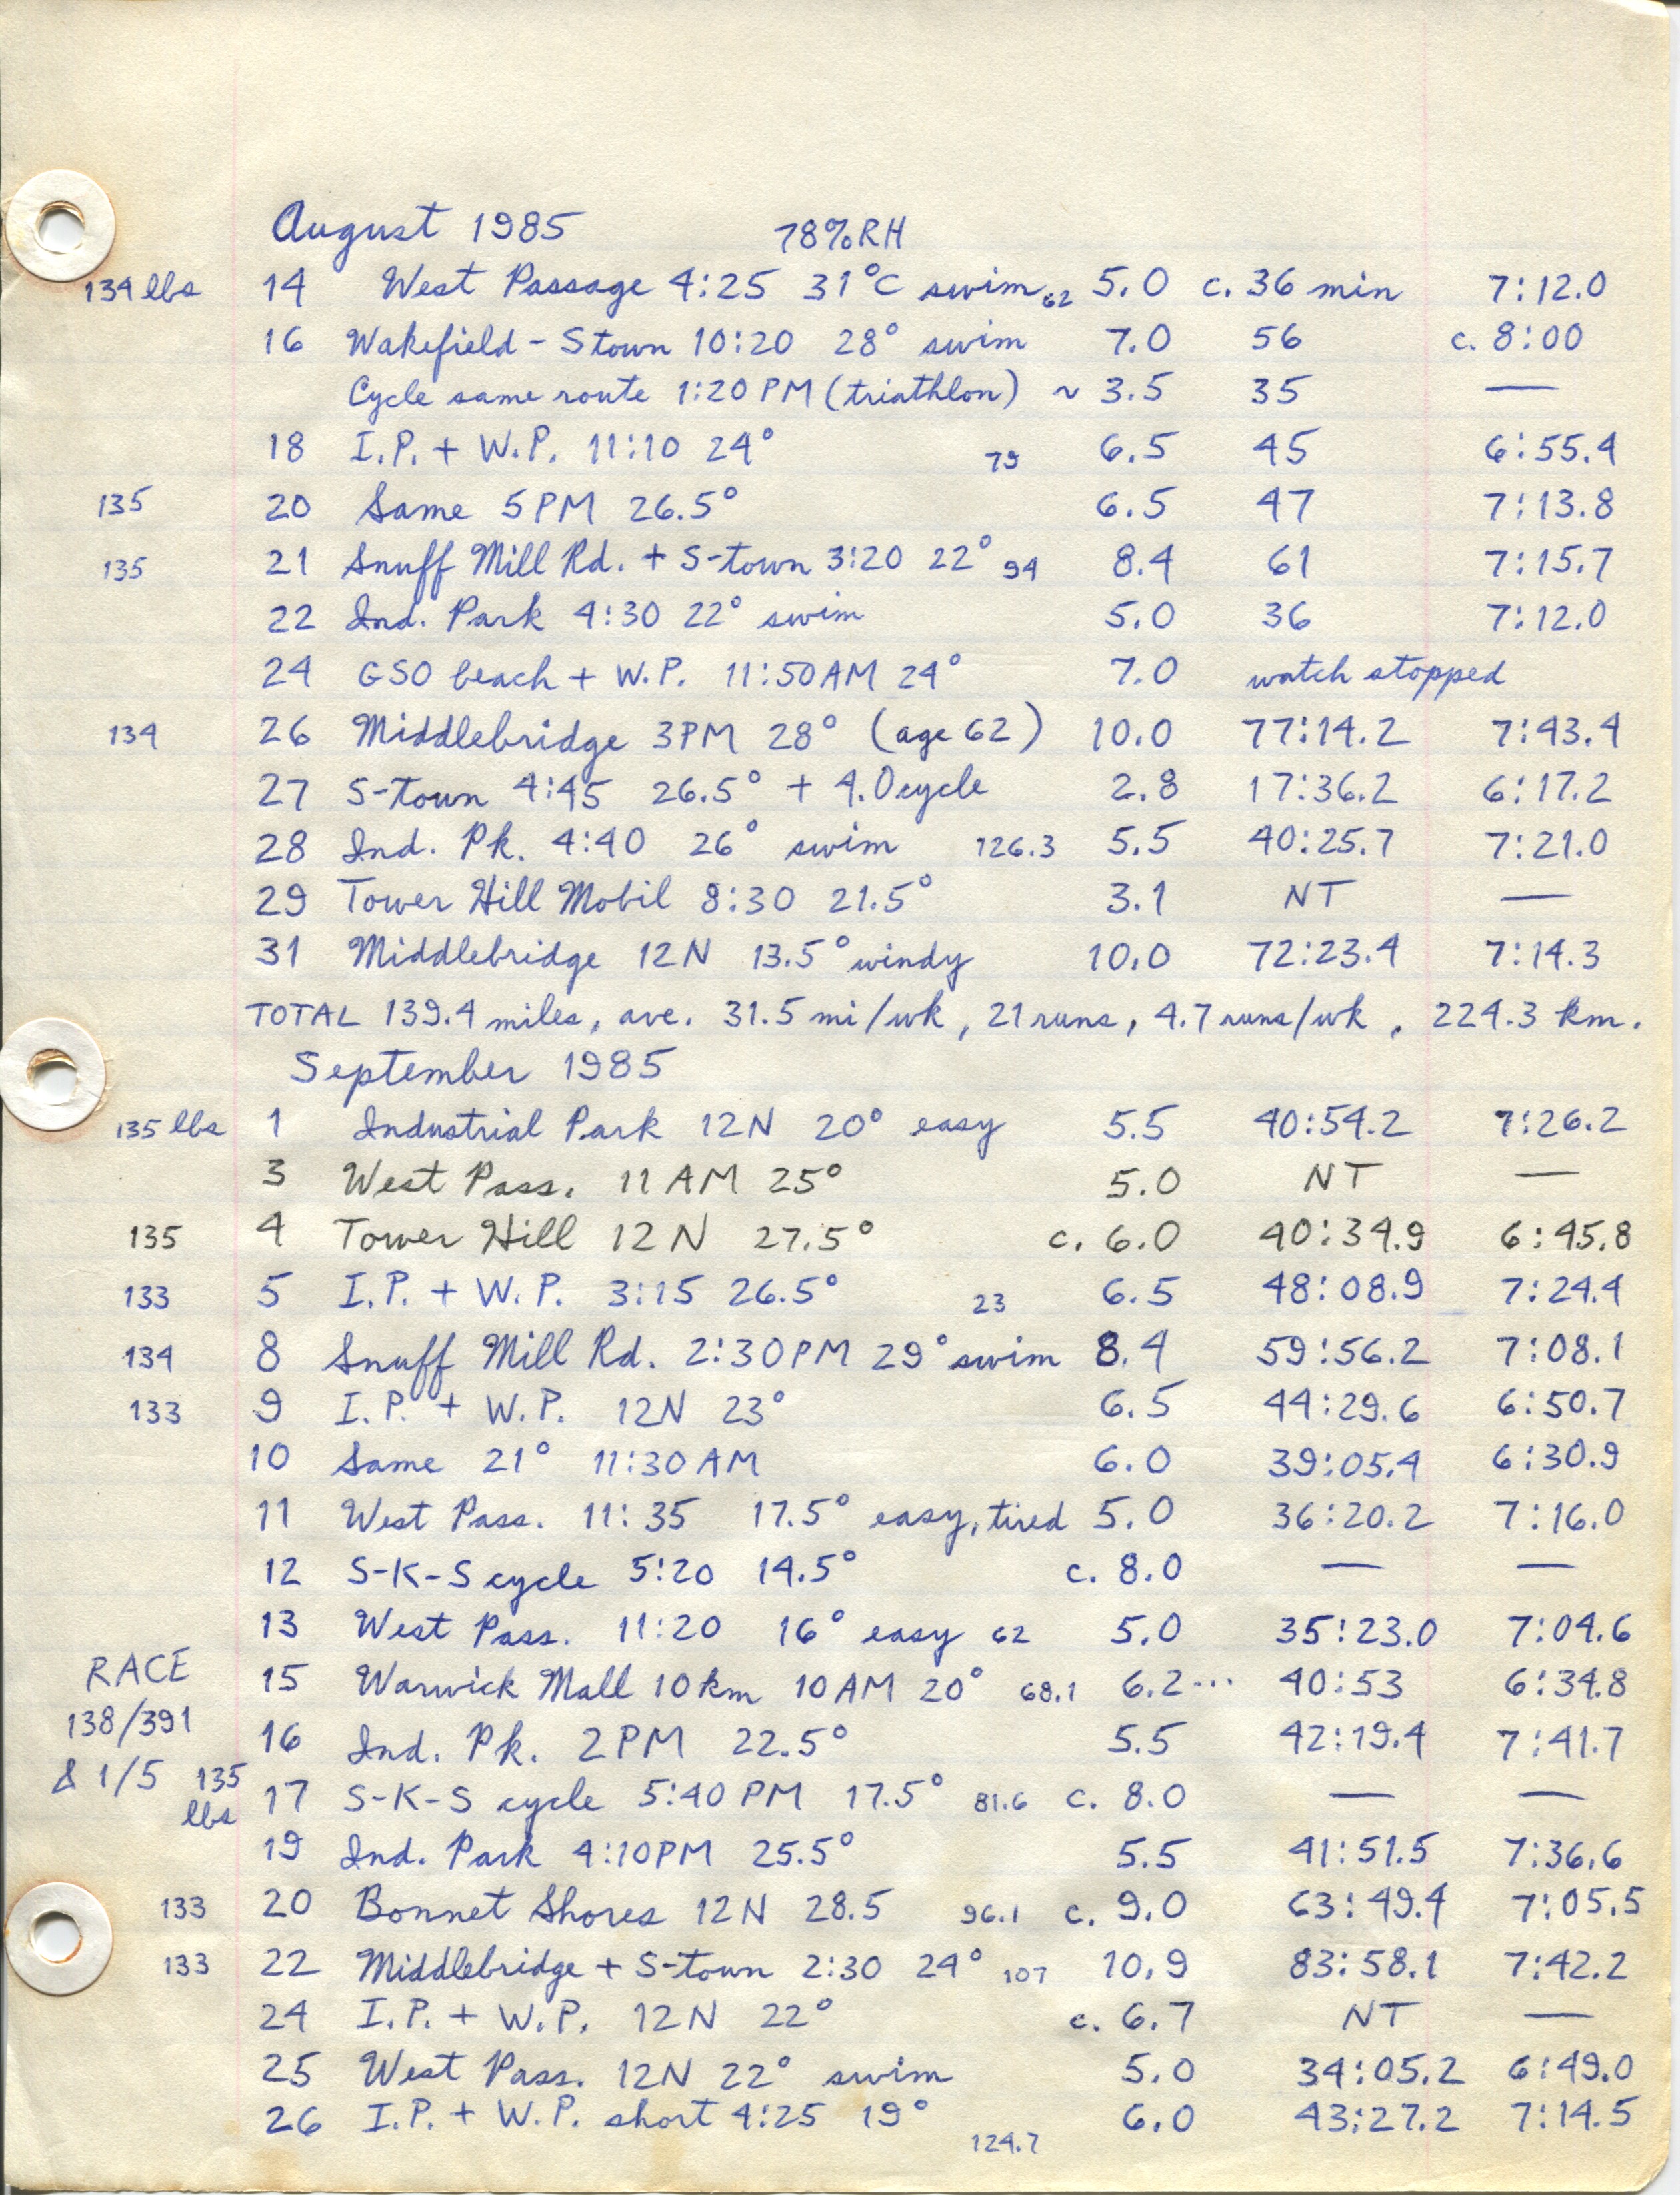 August 1985 78%RH
134 lbs 14 West Passage 4:25 31°C swim 62 5.0 c. 36 min 7:12.0
16 Wakefield - Stown 10:20 28° swim 7.0 56 c. 8:00
Cycle same route 1:20 PM (triathlon) ~ 3.5 35 —
18 I.P. + W.P. 11:10 24° 79 6.5 45 6:55.4
135 20 Same 5PM 26.5° 6.5 47 7:13.8
135 21 Snuff Mill Rd. + S-town 3:20 22° 94 8.4 61 7:15.7
22 Ind. Park 4:30 22° swim 5.0 36 7:12.0
24 GSO beach + W.P. 11:50AM 24° 7.0 watch stopped
134 26 Middlebridge 3PM 28° (age 62) 10.0 77:14.2 7:43.4
27 S-town 4:45 26.5° + 4.0 cycle 2.8 17:36.2 6:17.2
28 Ind. Pk. 4:40 26° swim 126.3 5.5 40:25.7 7:21.0
29 Tower Hill Mobil 8:30 21.5° 3.1 NT —
31 Middlebridge 12N 13.5° windy 10.0 72:23.4 7:14.3
TOTAL 139.4 miles, ave. 31.5 mi/wk, 21 runs, 4.7 runs/wk, 224.3 km.
September 1985
135 lbs 1 Industrial Park 12N 20° easy 5.5 40:54.2 7:26.2
3 West Pass. 11 AM 25° 5.0 NT —
135 4 Tower Hill 12N 27.5° c. 6.0 40:34.9 6:45.8
133 5 I.P. + W.P. 3:15 26.5° 23 6.5 48:08.9 7:24.4
134 8 Snuff Mill Rd. 2:30PM 29° swim 8.4 59:56.2 7:08.1
133 9 I.P. + W.P. 12N 23° 6.5 44:29.6 6:50.7
10 Same 21° 11:30 AM 6.0 39:05.4 6:30.9
11 West Pass. 11:35 17.5° easy, tired 5.0 36:20.2 7:16.0
12 S-K-S cycle 5:20 14.5° c. 8.0 — —
13 West Pass. 11:20 16° easy 62 5.0 35:23.0 7:04.6
RACE 15 Warwick Mall 10km 10AM 20° 68.1 6.2... 40:53 6:34.8
138/391 16 Ind. Pk. 2PM 22.5° 5.5 42:19.4 7:41.7
& 1/5 135 lbs 17 S-K-S cycle 5:40 PM 17.5° 81.6 c. 8.0 — —
19 Ind. Park 4:10PM 25.5° 5.5 41:51.5 7:36.6
133 20 Bonnet Shores 12N 28.5 96.1 c. 9.0 63:49.4 7:05.5
133 22 Middlebridge + S-town 2:30 24° 107 10.9 83:58.1 7:42.2
24 I.P. + W.P. 12N 22° c. 6.7 NT —
25 West Pass. 12N 22° swim 5.0 34:05.2 6:49.0
26 I.P. + W.P. short 4:25 19° 6.0 43:27.2 7:14.5
124.7